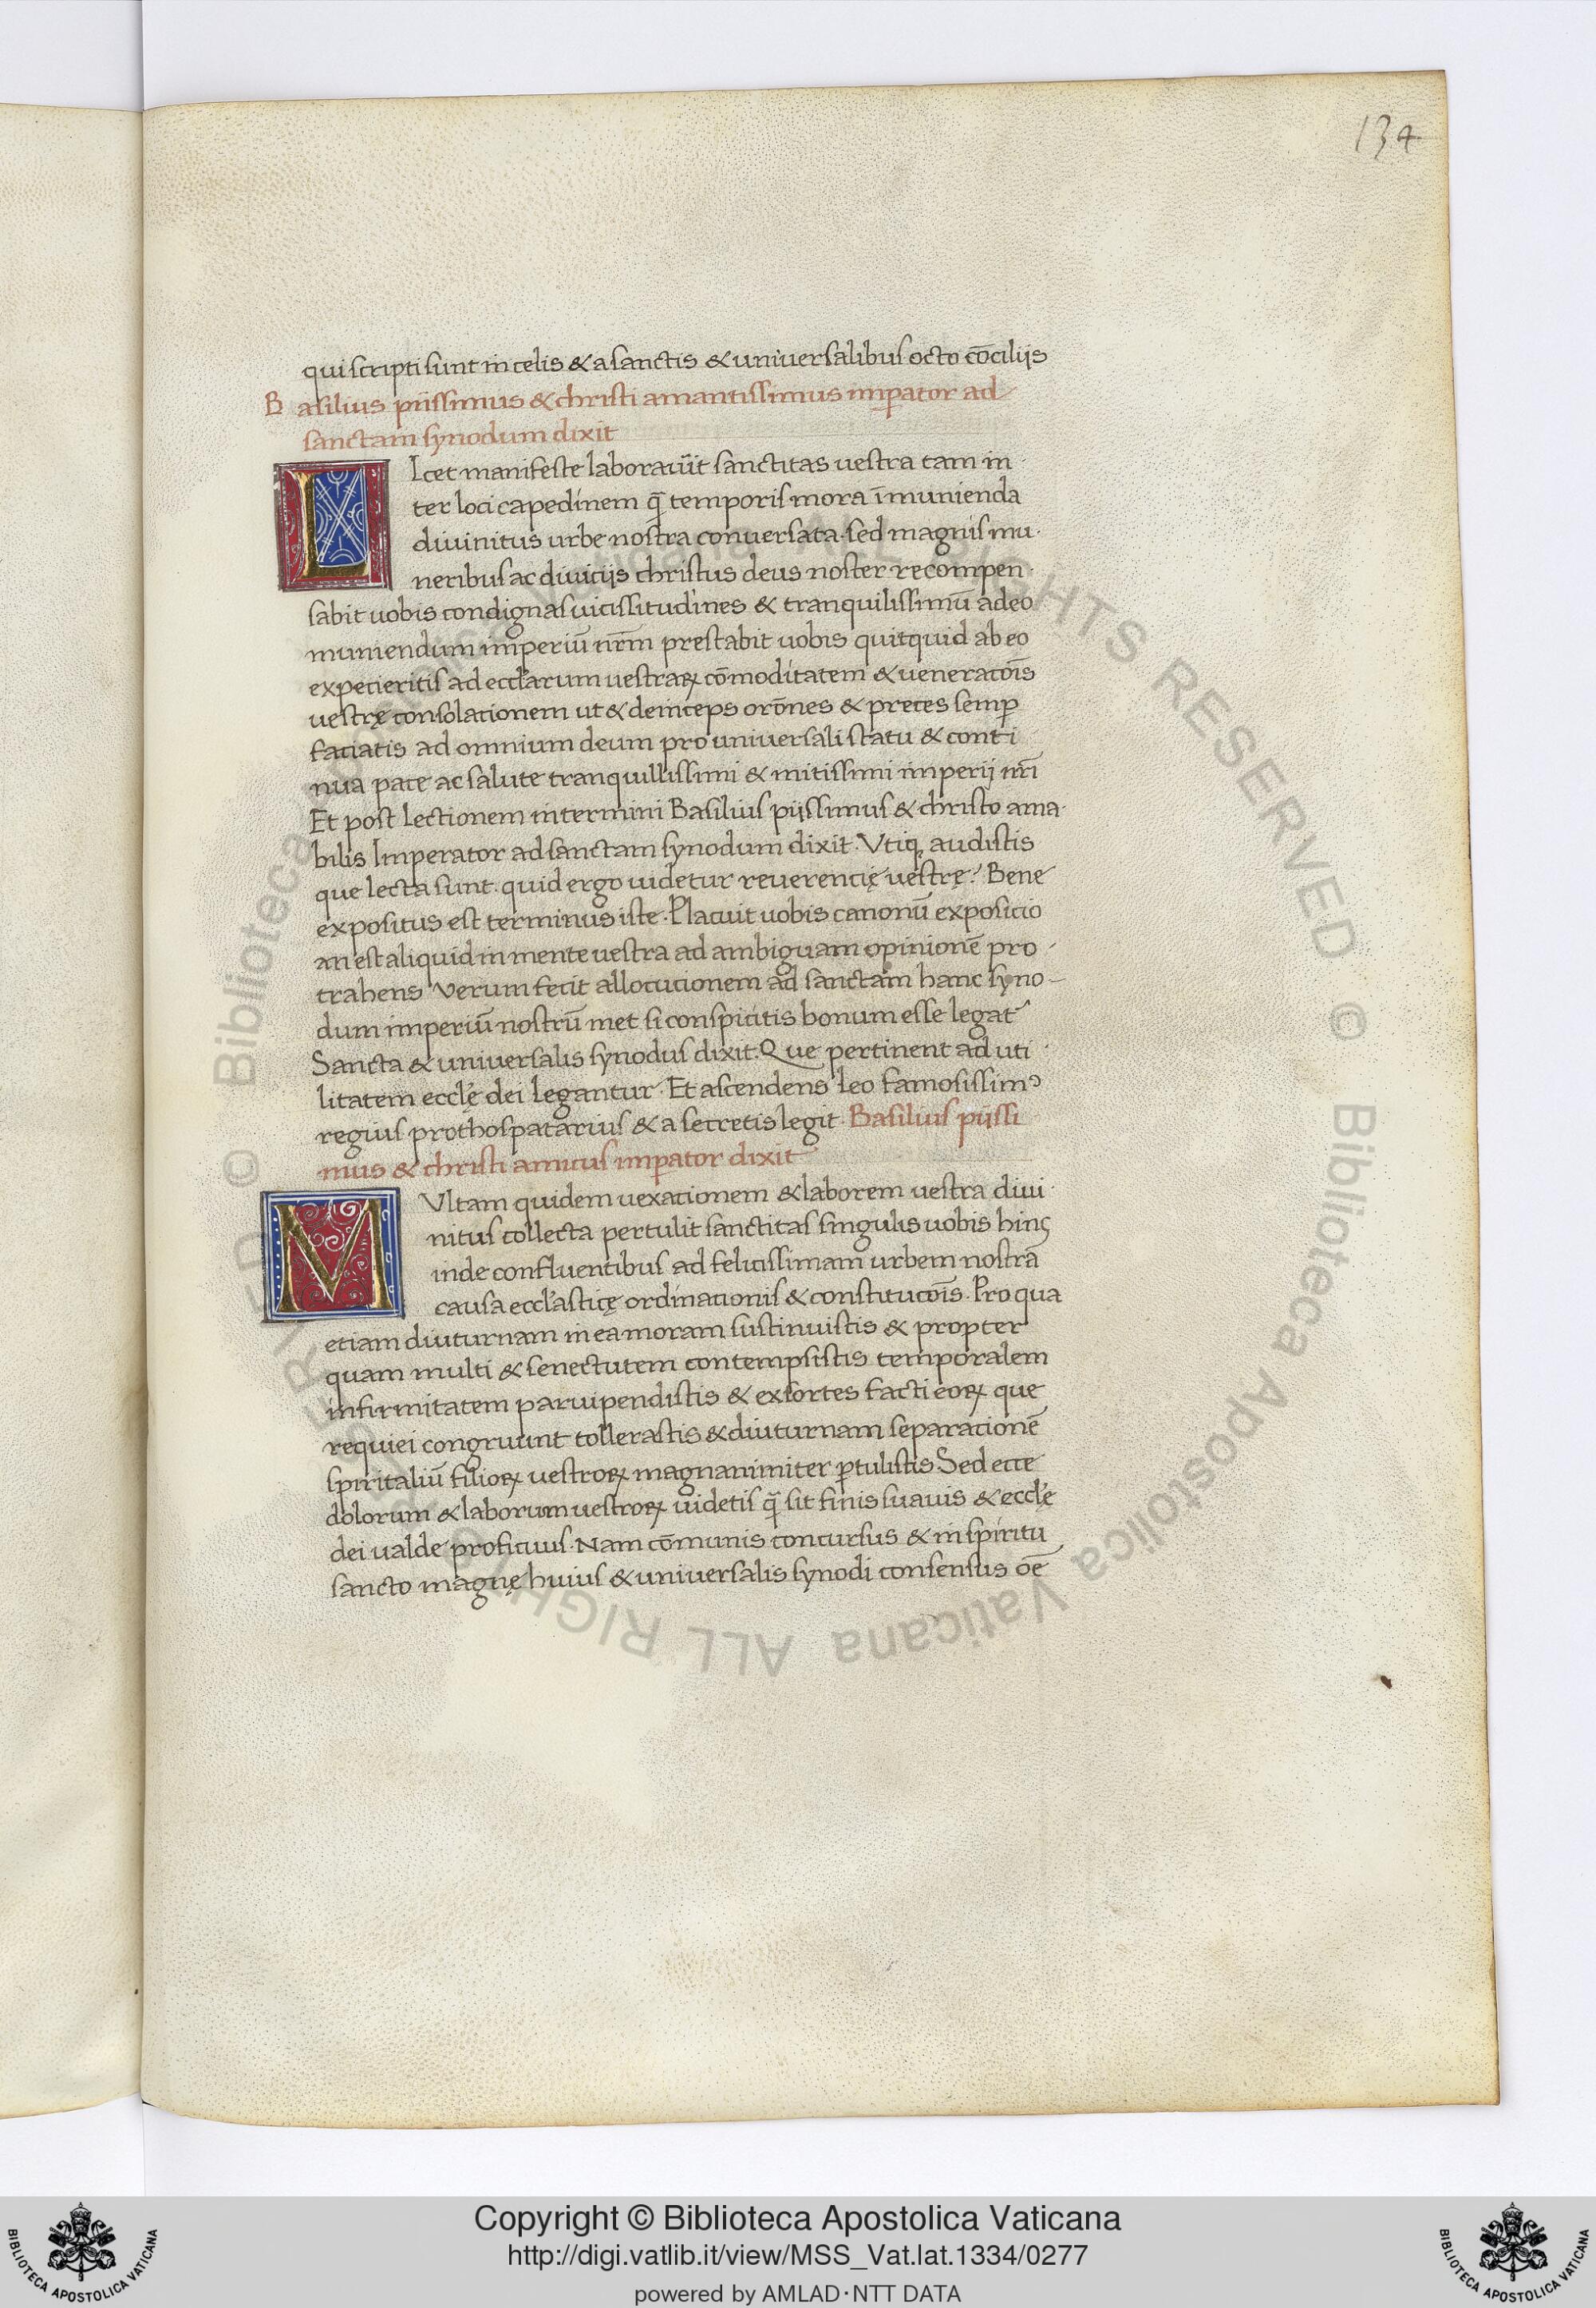 134
qui scripti sunt in celis & a sanctis & universalibus octo cōciliis
Basilius piissimus & christi amantissimus imꝑator ad
sanctam synodum dixit
LIcet manifeste laboraūit sanctitas vestra tam in
ter loci capedinem q̄ temporis mora ī munienda
divinitus urbe nostra conversata. sed magnis mu
neribus ac diviciis christus deus noster recompen
sabit vobis condignas vicissitudines & tranquilissimū adeo
muniendum imperiū nr̄m prestabit vobis quitquid ab eo
expecieritis ad eccl'arum vestraꝝ cōmoditatem & veneratōis
vestrę consolacionem ut & deinceps orōnes & preces semꝑ
faciatis ad omnium deum pro universali statu & conti
nua pace ac salute tranquillissimi & mitissimi imperii nr̄i
Et post lectionem in termini Basilius piissimus & christo ama
bilis Imperator ad sanctam synodum dixit. Vtiqꝫ audistis
que lecta sunt. quid ergo videtur reverencię vestrę? Bene
expositus est terminus iste. Placuit vobis canonū exposicio
an est aliquid in mente vestra ad ambiguam opinionē pro
trahens Verum fecit allocucionem ad sanctam hanc syno
dum imperiū nostrū met si conspicitis bonum esse legat
Sancta & universalis synodus dixit. Que pertinent ad uti
litatem eccl'ę dei legantur. Et ascendens leo famosissimꝰ
regius prothospatarius & a secretis legit. Basilius piissi
mus & christi amicus imꝑator dixit
MVltam quidem vexacionem & laborem vestra divi
nitus collecta pertulit sanctitas singulis vobis hinc
inde confluentibus ad felicissimam urbem nostrā
causa eccl'asticę ordinacionis & constitucōis. Pro qua
etiam diuturnam in ea moram sustinuistis & propter
quam multi & senectutem contempsistis temporalem
infirmitatem parvipendistis & exsortes facti eoꝝ que
requiei congruunt tollerastis & diuturnam separacionē
spiritaliū filioꝝ vestroꝝ magnanimiter ꝑtulistis Sed ecce
dolorum & laborum vestroꝝ videtis q̄ sit finis suavis & eccl'e
dei valde proficuus. Nam cōmunis concursus & in spiritu
sancto magnę huius & universalis synodi consensus oē
Copyright © Biblioteca Apostolica Vaticana
http://digi.vatlib.it/view/MSS_Vat.lat.1334/0277
powered by AMLAD·NTT DATA
BIBLIOTECA APOSTOLICA VATICANA
BIBLIOTECA APOSTOLICA VATICANA